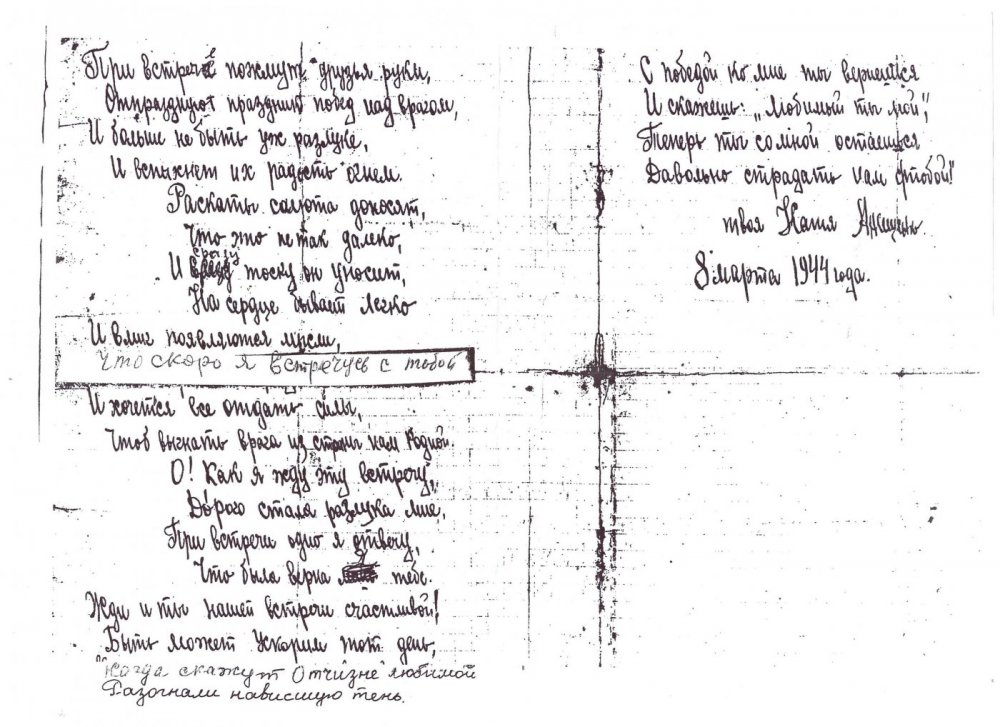 При встрече пожмут друзья руки,
Отпразднуют праздник побед над врагом,
И больше не быть уж разлуке,
И вспыхнет их радость огнем.
Раскаты салюта доносят,
Что это не так далеко,
И сразу тоску он уносит,
На сердце бывает легко
И вмиг появляются мысли,
Что скоро я встречусь с тобой
И хочется все отдать силы,
Чтоб выгнать врага из страны нам родной.
О! Как я жду эту встречу,
Дорого стала разлука мне,
При встречи одно я отвечу,
Что была верна я тебе.
Жди и ты нашей встречи счастливой!
Быть может ускорим тот день,
"Когда скажут Отчизне любимой
Разогнали нависшую тень.
С победой ко мне ты вернешься
И скажешь: "Любимый ты мой",
Теперь ты со мной остаешься
Давольно страдать нам с тобой!"
твоя Катя
8 марта 1944 года.